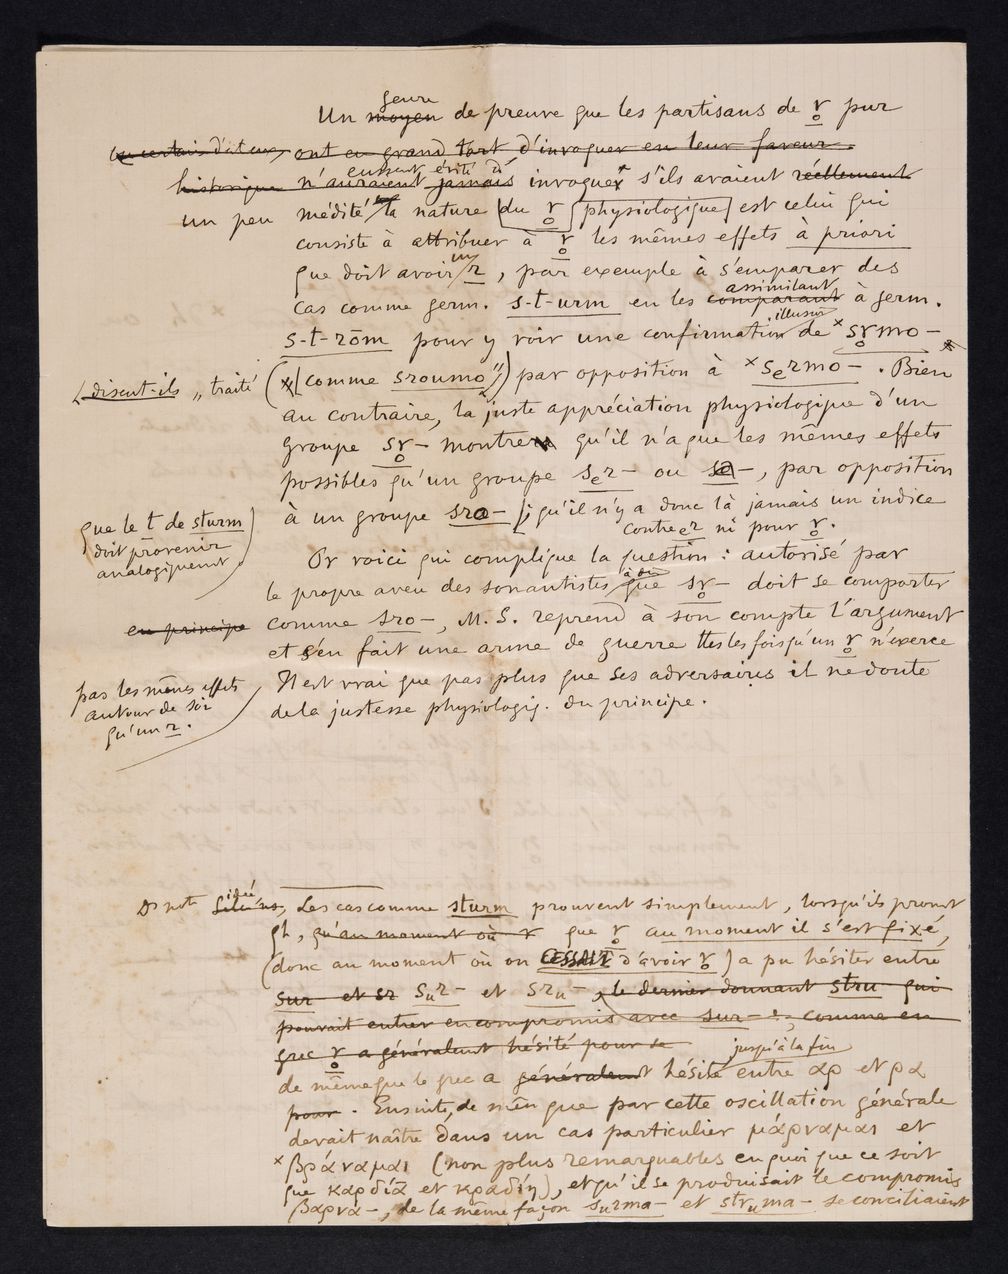 genre
Un moyen de preuve que les partisans de r̥ pur
ou certains d'entre eux, ont eu grand tort d'invoquer en leur faveur.
eussent évité d'
historique n'auraient jamais invoquer s'ils avaient réellement
un peu médité la nature du r̥ physiologique est celui qui
consiste à attribuer à r̥ les mêmes effets à priori
que doit avoir un r, par exemple à s'emparer des
assimilant
cas comme germ. s-t-urm en les comparant à germ.
illusoire
s-t-rōm pour y voir une confirmation de ×sr̥mo-
(disent-ils „ traité comme sroumo") par opposition à ×sₑrmo-. Bien
au contraire, la juste appréciation physiologique d'un
groupe sr̥- montrera qu'il n'a que les mêmes effets
possibles qu'un groupe sₑr- ou sa-, par opposition
à un groupe sra- ; qu'il n'y a donc là jamais un indice
contre ₑr ni pour r̥.
que le t de sturm
doit provenir
analogiquement
Or voici qui complique la question : autorisé par
le propre aveu des sonantistes que sr̥- doit se comporter
en principe comme sro-, M. S. reprend à son compte l'argument
et s'en fait une arme de guerre ttes les fois qu'un r̥ n'exerce
pas les mêmes effets
autour de soi
qu'un r.
Il est vrai que pas plus que ses adversaires il ne doute
de la justesse physiologiq. du principe.
Ds not idée, Les cas comme sturm prouvent simplement, lorsqu'ils prouvt
qch, qu'au moment où r que r̥ au moment il s'est fixé,
(donc au moment où on CESSAIT d'avoir r̥) a pu hésiter entre
sur et sr sᵤr- et srᵤ-, le dernier donnant stru qui
pouvait entrer en compromis avec sur- :, comme en
grec r̥ a généralemt hésité pour se
jusqu'à la fin
de même que le grec a généralemt hésité entre αρ et ρα
pour. Ensuite, de mêm que par cette oscillation générale
devait naître dans un cas particulier μάρναμαι et
×βράναμαι (non plus remarquables en quoi que ce soit
que καρδίᾱ et κραδίη), et qu'il se produisait le compromis
βαρνά-, de la même façon sᵤrma- et strᵤma- se conciliaient